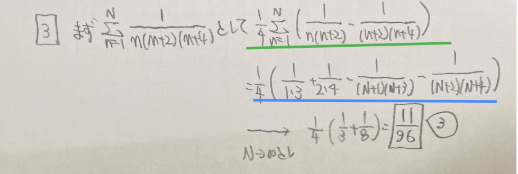 3 まず \sum_{n=1}^{N} \frac{1}{n(n+2)(n+4)} として \frac{1}{4} \sum_{n=1}^{N} \left( \frac{1}{n(n+2)} - \frac{1}{(n+2)(n+4)} \right)
= \frac{1}{4} \left( \frac{1}{1 \cdot 3} + \frac{1}{2 \cdot 4} - \frac{1}{(N+1)(N+3)} - \frac{1}{(N+2)(N+4)} \right)
\xrightarrow[N→∞として]{} \frac{1}{4} \left( \frac{1}{3} + \frac{1}{8} \right) = \frac{11}{96} ③